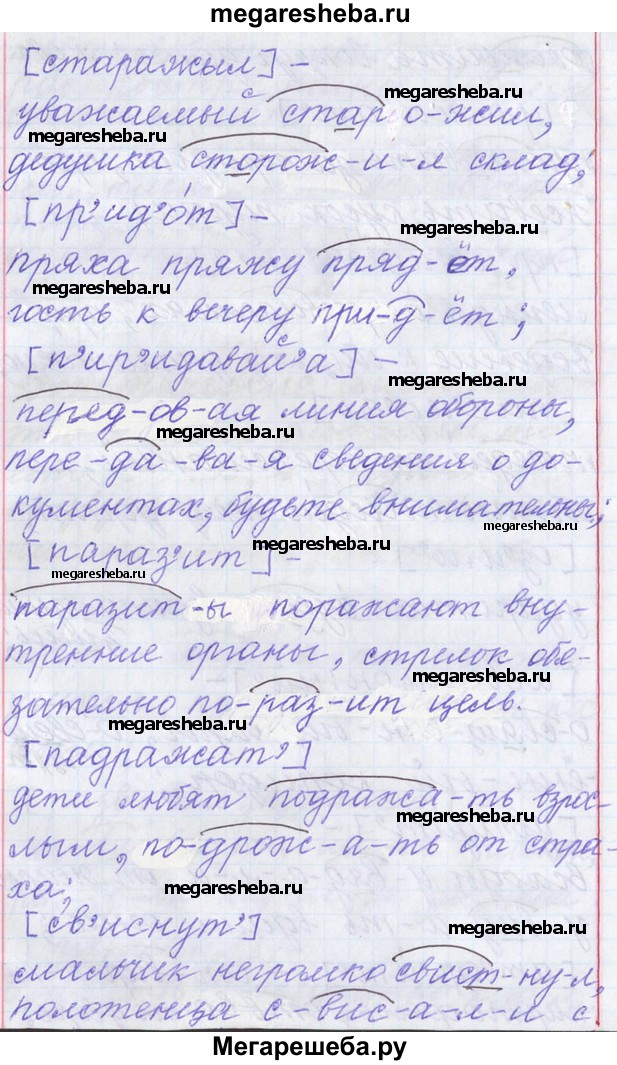 megaresheba.ru
[старажыл] –
megaresheba.ru
уважаемый стар-о-жил,
megaresheba.ru
дедушка сторож-и-л склад;
[пр'ид'о́т] –
megaresheba.ru
пряха пряжу пряд-ёт,
megaresheba.ru
гость к вечеру при-д-ёт;
[п'ир'идавай'а] –
megaresheba.ru
перед-ов-ая линия обороны,
megaresheba.ru
пере-да-ва-я сведения о до-
кументах, будьте внимательны;
megaresheba.ru
[параз'ит] –
megaresheba.ru
megaresheba.ru
паразит-ы поражают вну-
тренние органы, стрелок обя-
зательно по-раз-ит цель.
megaresheba.ru
[падражат']
дети любят подража-ть взрос-
megaresheba.ru
лым, по-дрож-а-ть от стра-
ха;
megaresheba.ru
[св'иснут']
megaresheba.ru
мальчик негромко свист-ну-л,
megaresheba.ru
полотенца с-вис-а-л-и с
Мегарешеба.ру